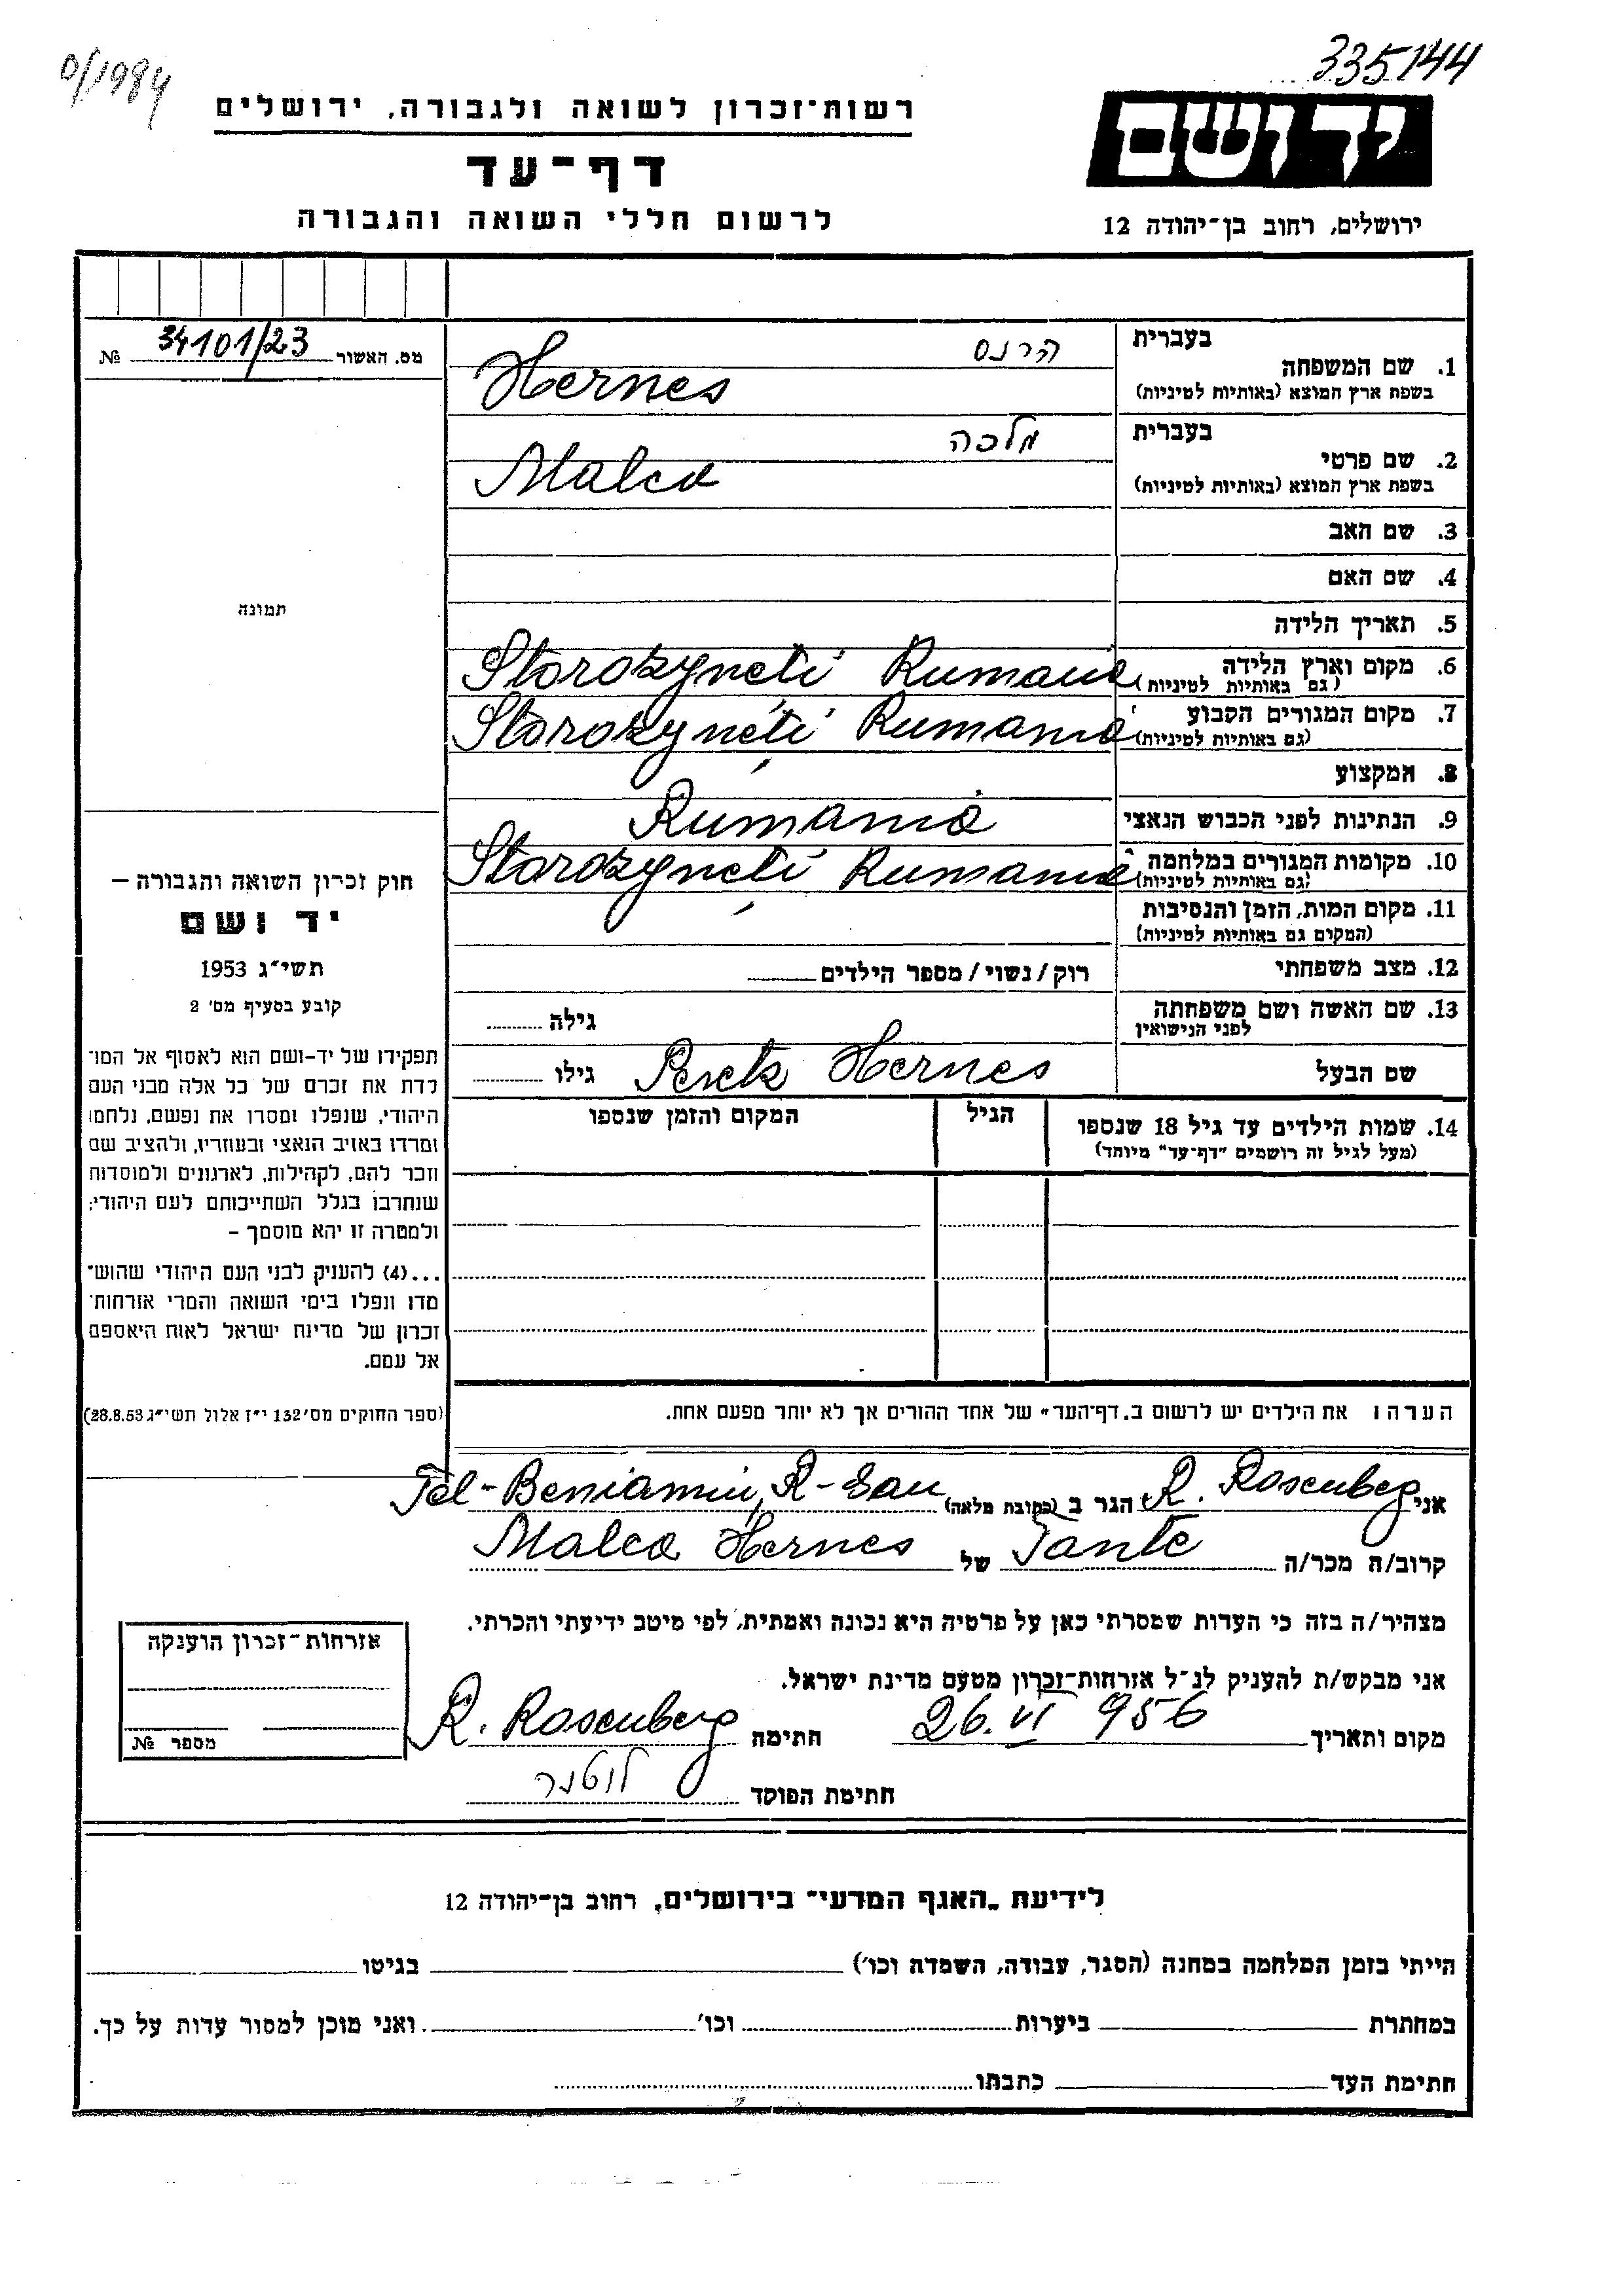 335144
0/1984
יד ושם
ירושלים, רחוב בן־יהודה 12
רשות־זכרון לשואה ולגבורה, ירושלים
דף־עד
לרשום חללי השואה והגבורה
מס. האשור 34101/23 №
תמונה
חוק זכרון השואה והגבורה –
יד ושם
תשי״ג 1953
קובע בסעיף מס׳ 2
תפקידו של יד-ושם הוא לאסוף אל המו־
לדת את זכרם של כל אלה מבני העם
היהודי, שנפלו ומסרו את נפשם, נלחמו
ומרדו באויב הנאצי ובעוזריו, ולהציב שם
וזכר להם, לקהילות, לארגונים ולמוסדות
שנחרבו בגלל השתייכותם לעם היהודי;
ולמטרה זו יהא מוסמך –
...(4) להעניק לבני העם היהודי שהוש־
מדו ונפלו בימי השואה והמרי אזרחות־
זכרון של מדינת ישראל לאות היאספם
אל עמם.
(ספר החוקים מס׳ 132 י״ז אלול תשי״ג 28.8.53)
בעברית הרנס
1. שם המשפחה
בשפת ארץ המוצא (באותיות לטיניות) Hernes
בעברית מלכה
2. שם פרטי
בשפת ארץ המוצא (באותיות לטיניות) Malca
3. שם האב
4. שם האם
5. תאריך הלידה
6. מקום וארץ הלידה Storozyneti Rumania
(גם באותיות לטיניות)
7. מקום המגורים הקבוע Storozyneti Rumania
(גם באותיות לטיניות)
8. המקצוע
9. הנתינות לפני הכבוש הנאצי Rumania
10. מקומות המגורים במלחמה Storozyneti Rumania
(גם באותיות לטיניות)
11. מקום המות, הזמן והנסיבות
(המקום גם באותיות לטיניות)
12. מצב משפחתי רוק/נשוי/מספר הילדים
13. שם האשה ושם משפחתה גילה
לפני הנישואין
שם הבעל Peretz Hernes גילו
14. שמות הילדים עד גיל 18 שנספו הגיל המקום והזמן שנספו
(מעל לגיל זה רושמים "דף־עד" מיוחד)
הערה: את הילדים יש לרשום ב„דף־העד" של אחד ההורים אך לא יותר מפעם אחת.
אני R. Rosenberg הגר ב (כתובת מלאה) Tel-Beniamin, R-Gan
קרוב/ה מכר/ה Tante של Malca Hernes
מצהיר/ה בזה כי העדות שמסרתי כאן על פרטיה היא נכונה ואמתית, לפי מיטב ידיעתי והכרתי.
אני מבקש/ת להעניק לנ״ל אזרחות־זכרון מטעם מדינת ישראל.
מקום ותאריך 26. VI 956 חתימה R. Rosenberg
חתימת הפוקד
אזרחות־זכרון הוענקה
מספר №
לידיעת „האגף המדעי" בירושלים, רחוב בן־יהודה 12
הייתי בזמן המלחמה במחנה (הסגר, עבודה, השמדה וכו׳) בגיטו
במחתרת ביערות וכו׳ ואני מוכן למסור עדות על כך.
חתימת העד כתבתו